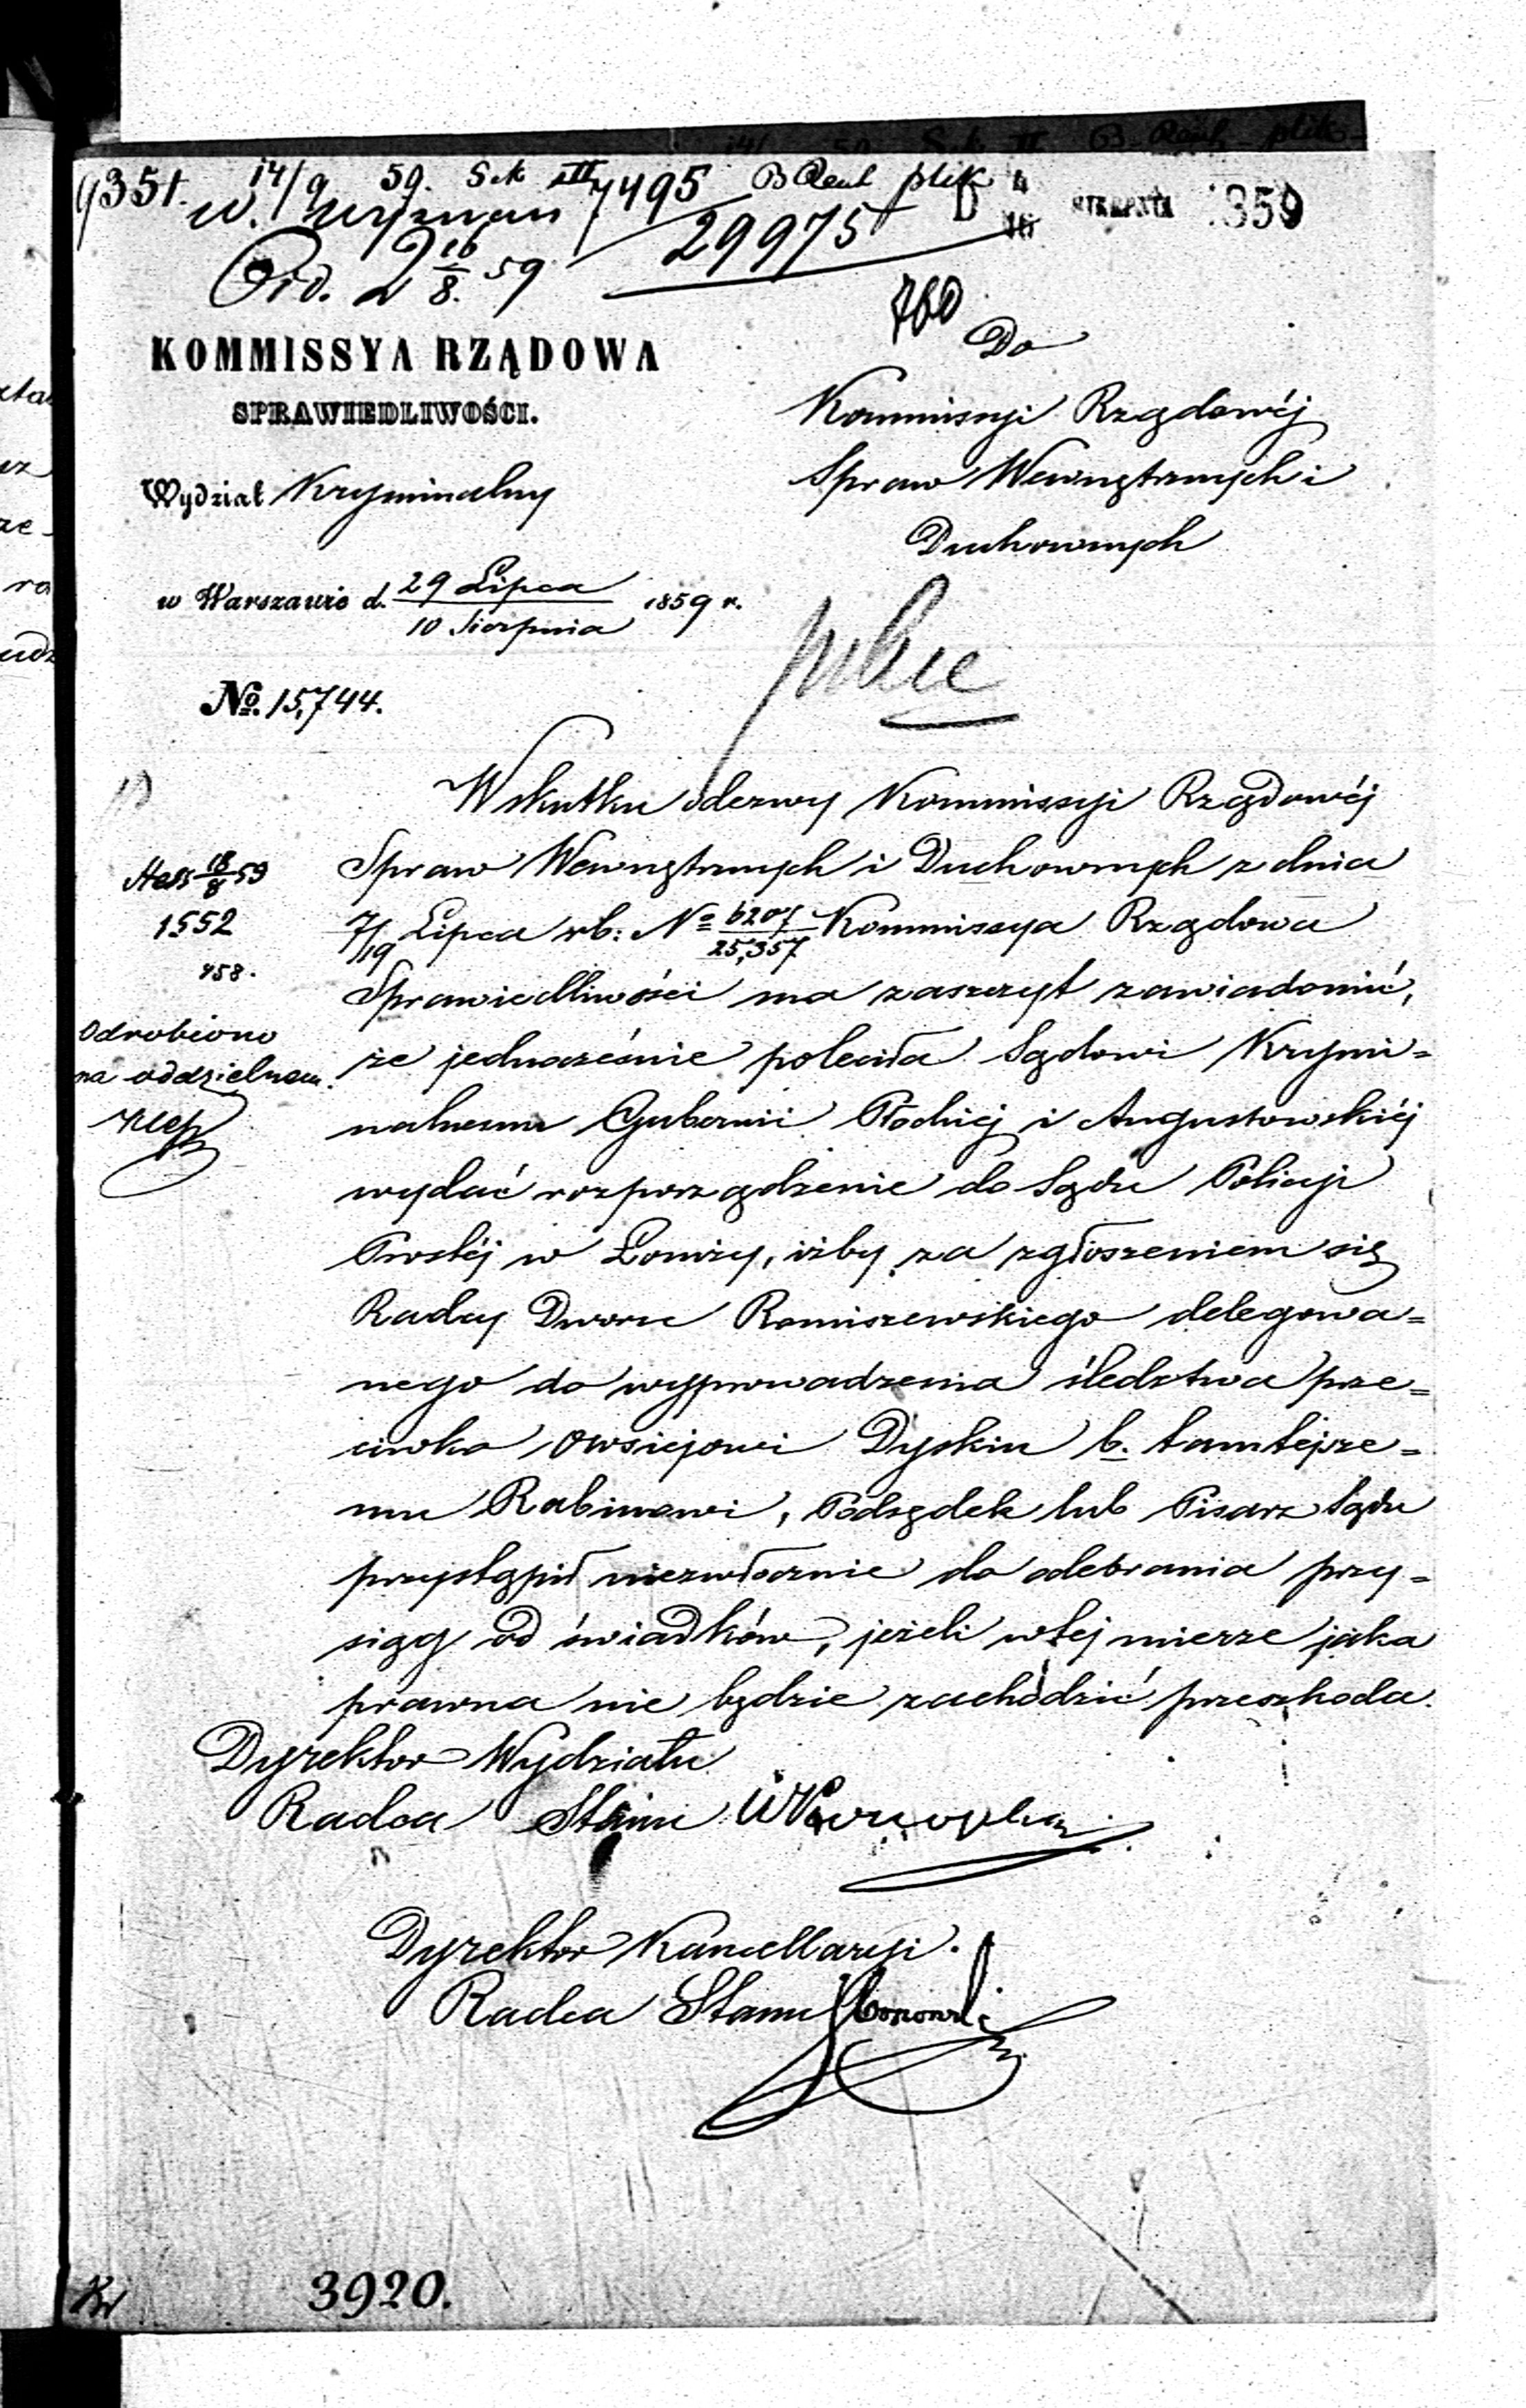 9351. 14/9 59. 7495 plik 4
29975 16 SIERPNIA 1859
16/8. 59
760
KOMMISSYA RZĄDOWA
SPRAWIEDLIWOŚCI.
Wydział Kryminalny
w Warszawie d. 29 Lipca / 10 Sierpnia 1859 r.
No. 15,744.
Do
Kommissyi Rządowéj
Spraw Wewnętrznych i
Duchownych
pilne
Wskutku odezwy Kommissyi Rządowéj
Spraw Wewnętrznych i Duchownych z dnia
7/19 Lipca rb: No 6207/25,357 Kommissya Rządowa
Sprawiedliwości ma zaszczyt zawiadomić,
że jednocześnie poleciła Sądowi Krymi=
nalnemu Gubernii Płockiéj i Augustowskiéj
wydać rozporządzenie do Sądu Policyi
Prostéj w Łomży, iżby za zgłoszeniem się
Radcy Dworu Romiszewskiego delegowa=
nego do wyprowadzenia śledztwa prze=
ciwko Owsiejowi Dyskin b. tamtejsze=
mu Rabinowi, Podsędek lub Pisarz Sądu
przystąpił niezwłocznie do odebrania przy=
sięg od świadków, jeżeli w tej mierze jaka
prawna nie będzie zachodzić przeszkoda.
18/8 59
1552
958.
Odrobiono
na oddzielnem.
Dyrektor Wydziału
Radca Stanu
Dyrektor Kancellaryi.
Radca Stanu
3920.